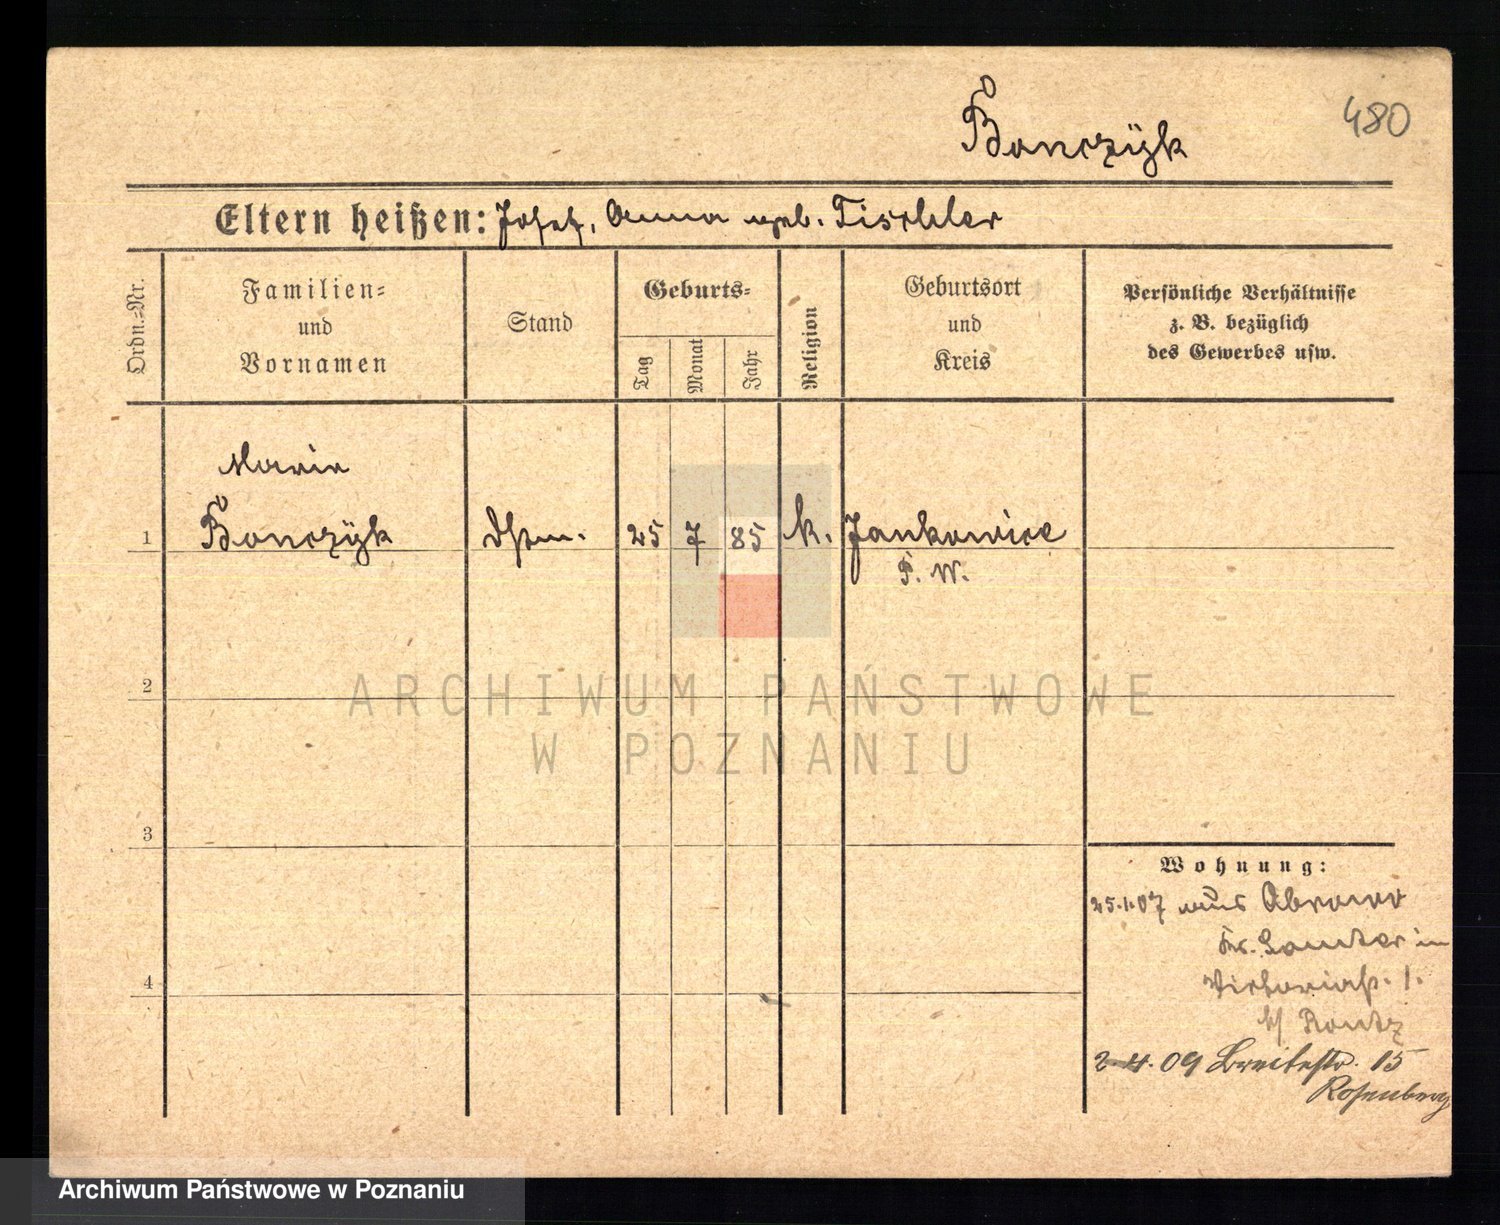 Bonczÿk
480
Eltern heißen: Josef, Anna geb. Tischler
Ordn.=Nr.
Familien=
und
Vornamen
Stand
Geburts=
Tag
Monat
Jahr
Religion
Geburtsort
und
Kreis
Persönliche Verhältnisse
z. B. bezüglich
des Gewerbes usw.
Marie
1 Bonczÿk 25 7 85 k. Jankowice
W.
2
ARCHIWUM PAŃSTWOWE
W POZNANIU
3
Wohnung:
25.1.07 aus
Kr. Samter in
4
Victoriast. 1.
2.4.09 Breitestr. 15
Rosenberg
Archiwum Państwowe w Poznaniu